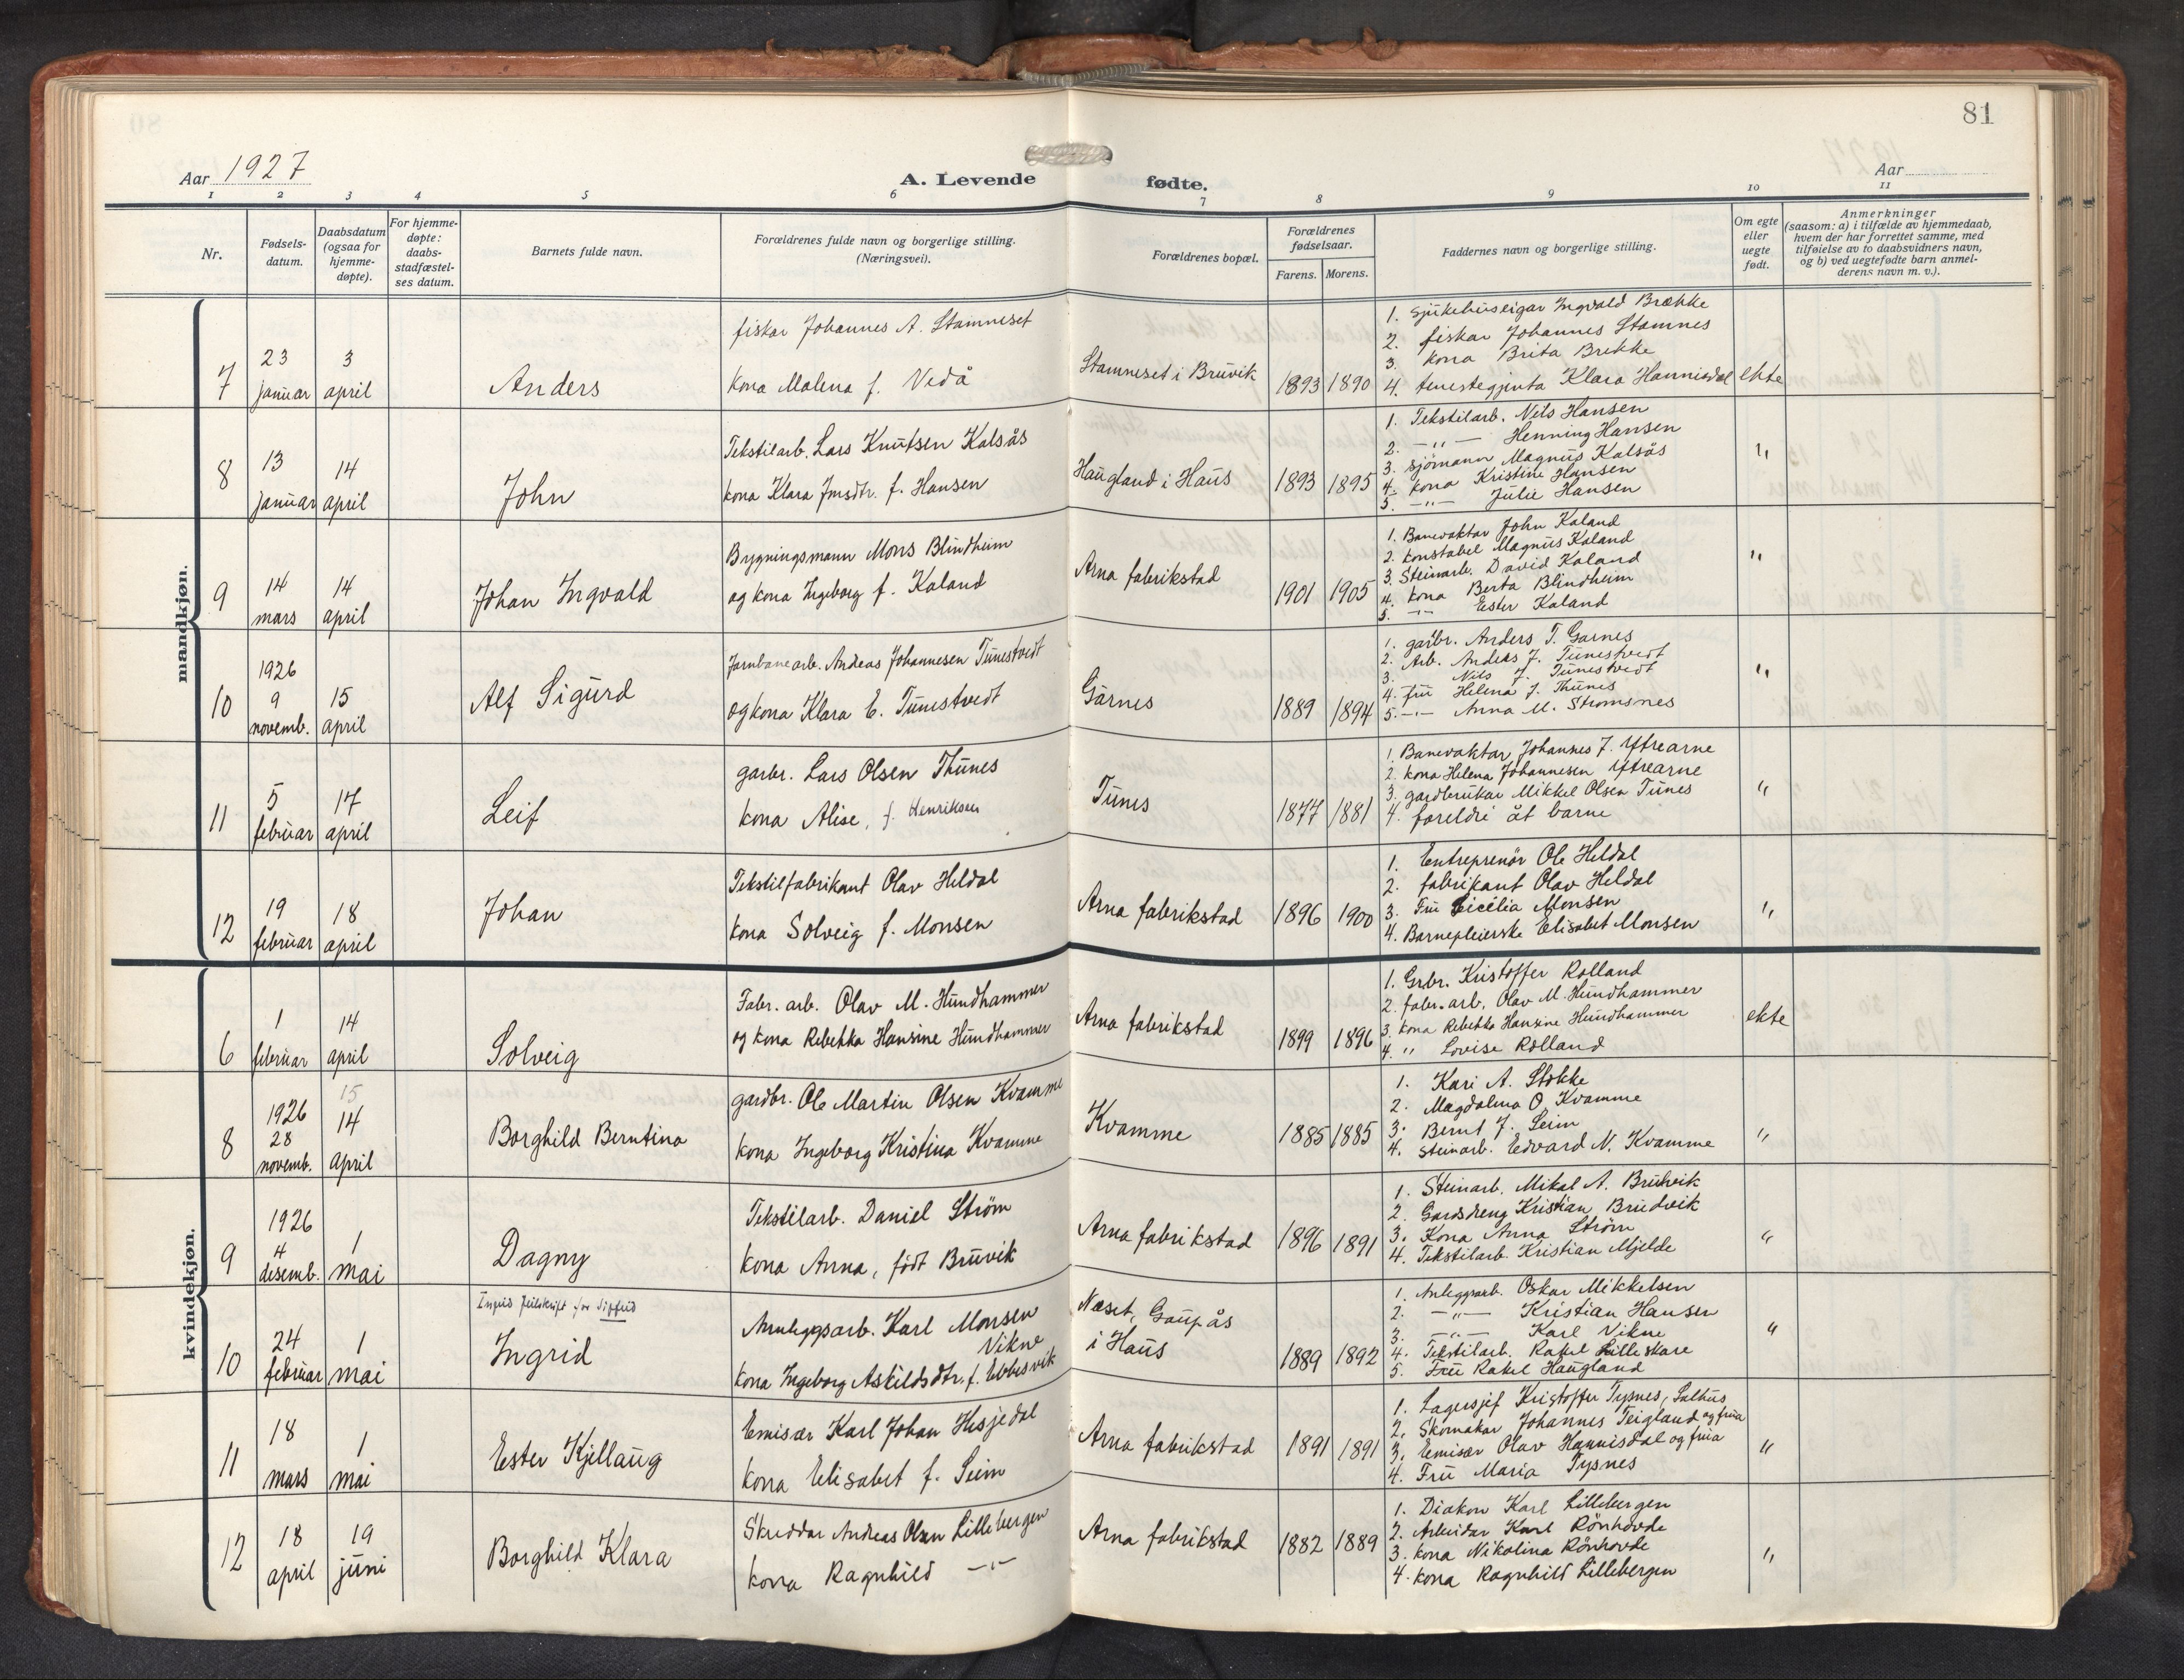 81
Aar 1927
A. Levende fødte.
Aar
1 2 3 4 5 6 7 8 9 10 11
Nr.
Fødsels-
datum.
Daabsdatum
(ogsaa for
hjemme-
døpte).
For hjemme-
døpte:
daabs-
stadfæstel-
ses datum.
Barnets fulde navn.
Forældrenes fulde navn og borgerlige stilling.
(Næringsvei).
Forældrenes bopæl.
Forældrenes
fødselsaar.
Farens. Morens.
Faddernes navn og borgerlige stilling.
Om egte
eller
uegte
født.
Anmerkninger
(saasom: a) i tilfælde av hjemmedaab,
hvem der har forrettet samme, med
tilføielse av to daabsvidners navn,
og b) ved uegtefødte barn anmel-
derens navn m. v.).
mandkjøn.
7
23
januar
3
april
Anders
fiskar Johannes A. Stamneset
kona Malena f. Vedå
Stamneset i Bruvik
1893 1890
1. Sjukehuseigar Ingvald Brække
2. fiskar Johannes Stamnes
3. kona Brita Brekke
4. tenestegjenta Klara Hannisdal
ekte
8
13
januar
14
april
John
Tekstilarb. Lars Knutsen Kalsås
kona Klara Jnsdtr. f. Hansen
Haugland i Haus
1893 1895
1. Tekstilarb. Nils Hansen
2. —"— Henning Hansen
3. sjömann Magnus Kalsås
4. kona Kristine Hansen
5. —"— Julie Hansen
"
9
14
mars
14
april
Johan Ingvald
Bygningsmann Mons Blindheim
og kona Ingeborg f. Kaland
Arna fabrikstad
1901 1905
1. Banevaktar John Kaland
2. konstabel Magnus Kaland
3. Steinarb. David Kaland
4. kona Berta Blindheim
5. —"— Ester Kaland
"
10
1926
9
novemb.
15
april
Alf Sigurd
Jarnbanearb. Andreas Johannesen Tunestvedt
og kona Klara E. Tunestvedt
Garnes
1889 1894
1. garbr. Anders T. Garnes
2. Arb. Anders J. Tunestvedt
3. Nils J. Tunestvedt
4. fru Helena J. Thunes
5. —"— Anna M. Stromsnes
"
11
5
februar
17
april
Leif
garbr. Lars Olsen Thunes
kona Alise, f. Henriksen
Tunes
1877 1881
1. Banevaktar Johannes J. Ytrearne
2. kona Helena Johannesen Ytrearne
3. gardbrukar Mikkel Olsen Tunes
4. foreldri åt barne
"
12
19
februar
18
april
Johan
Tekstilfabrikant Olav Heldal
kona Solveig f. Monsen
Arna fabrikstad
1896 1900
1. Entreprenör Ole Heldal
2. fabrikant Olav Heldal
3. Fru Cicelia Monsen
4. Barnepleierske Elisabet Monsen
"
kvindekjøn.
6
1
februar
14
april
Solveig
Fabr. arb. Olav M. Hundhammer
og kona Rebekka Hansine Hundhammer
Arna fabrikstad
1899 1896
1. Grbr. Kristoffer Rolland
2. fabr. arb. Olav M. Hundhammer
3. kona Rebekka Hansine Hundhammer
4. " Lovise Rolland
ekte
8
1926
28
novemb.
15
14
april
Borghild Berntina
gardbr. Ole Martin Olsen Kvamme
kona Ingeborg Kristina Kvamme
Kvamme
1885 1885
1. Kari A. Stokke
2. Magdalena O Kvamme
3. Bernt J. Seim
4. steinarb. Edvard N. Kvamme
"
9
1926
4
desemb.
1
mai
Dagny
Tekstilarb. Daniel Ström
kona Anna, födt Bruvik
Arna fabrikstad
1896 1891
1. Steinarb. Mikal A. Bruhvik
2. Gardsdreng Kristian Brudvik
3. Kona Anna Ström
4. Tekstilarb. Kristian Mjelde
"
10
24
februar
1
mai
Ingrid feilskrift for Sigfrid
Ingrid
Anleggsarb. Karl Monsen
Vikne
kona Ingeborg Askildsdtr. f. Ebbesvik
Næset, Gaupås
i Haus
1889 1892
1. Anleggsarb. Oskar Mikkelsen
2. —"— Kristian Hansen
3. —"— Karl Vikne
4. Tekstilarb. Rakel Lilleskare
5. Fru Rakel Haugland
"
11
18
mars
1
mai
Ester Kjellaug
Emisær Karl Johan Hesjedal
kona Elisabet f. Seim
Arna fabrikstad
1891 1891
1. Lagersjef Kristoffer Tysnes, Salhus
2. Skomakar Johannes Teigland og frua
3. Emisær Olav Hannisdal og frua
4. Fru Maria Tysnes
"
12
18
april
19
juni
Borghild Klara
Skreddar Andreas Olsen Lillebergen
kona Ragnhild —"—
Arna fabrikstad
1882 1889
1. Diakon Karl Lillebergen
2. Arbeidar Karl Rönhovde
3. kona Nikolina Rönhovde
4. kona Ragnhild Lillebergen
"